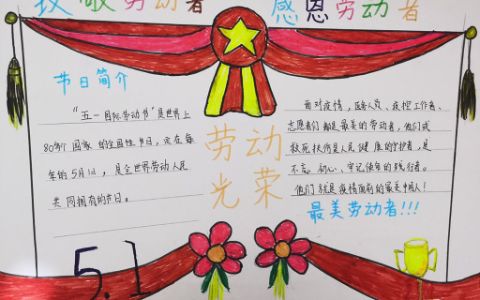 致敬劳动者
感恩劳动者
节日简介
"五一国际劳动节"是世界上
80多个国家的全国性节日，定在每
年的5月1日，是全世界劳动人民
共同拥有的节日。
劳动
光荣
面对疫情，医务人员、疫控工作者、
志愿者们都是最美的劳动者，他们或
救死扶伤是人民健康的守护者，是
不忘初心、牢记使命的践行者。
他们就是疫情面前的最美中国人！
最美劳动者!!!
5.1